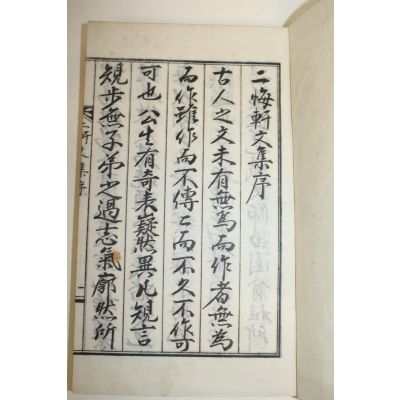 二悔軒文集序
古人之文未有無爲而作者無爲
而作雖作而不傳〻而不久不作可
可也公生有奇表嶷然異凡規言
規步無子弟之過志氣廓然所
二軒文集序